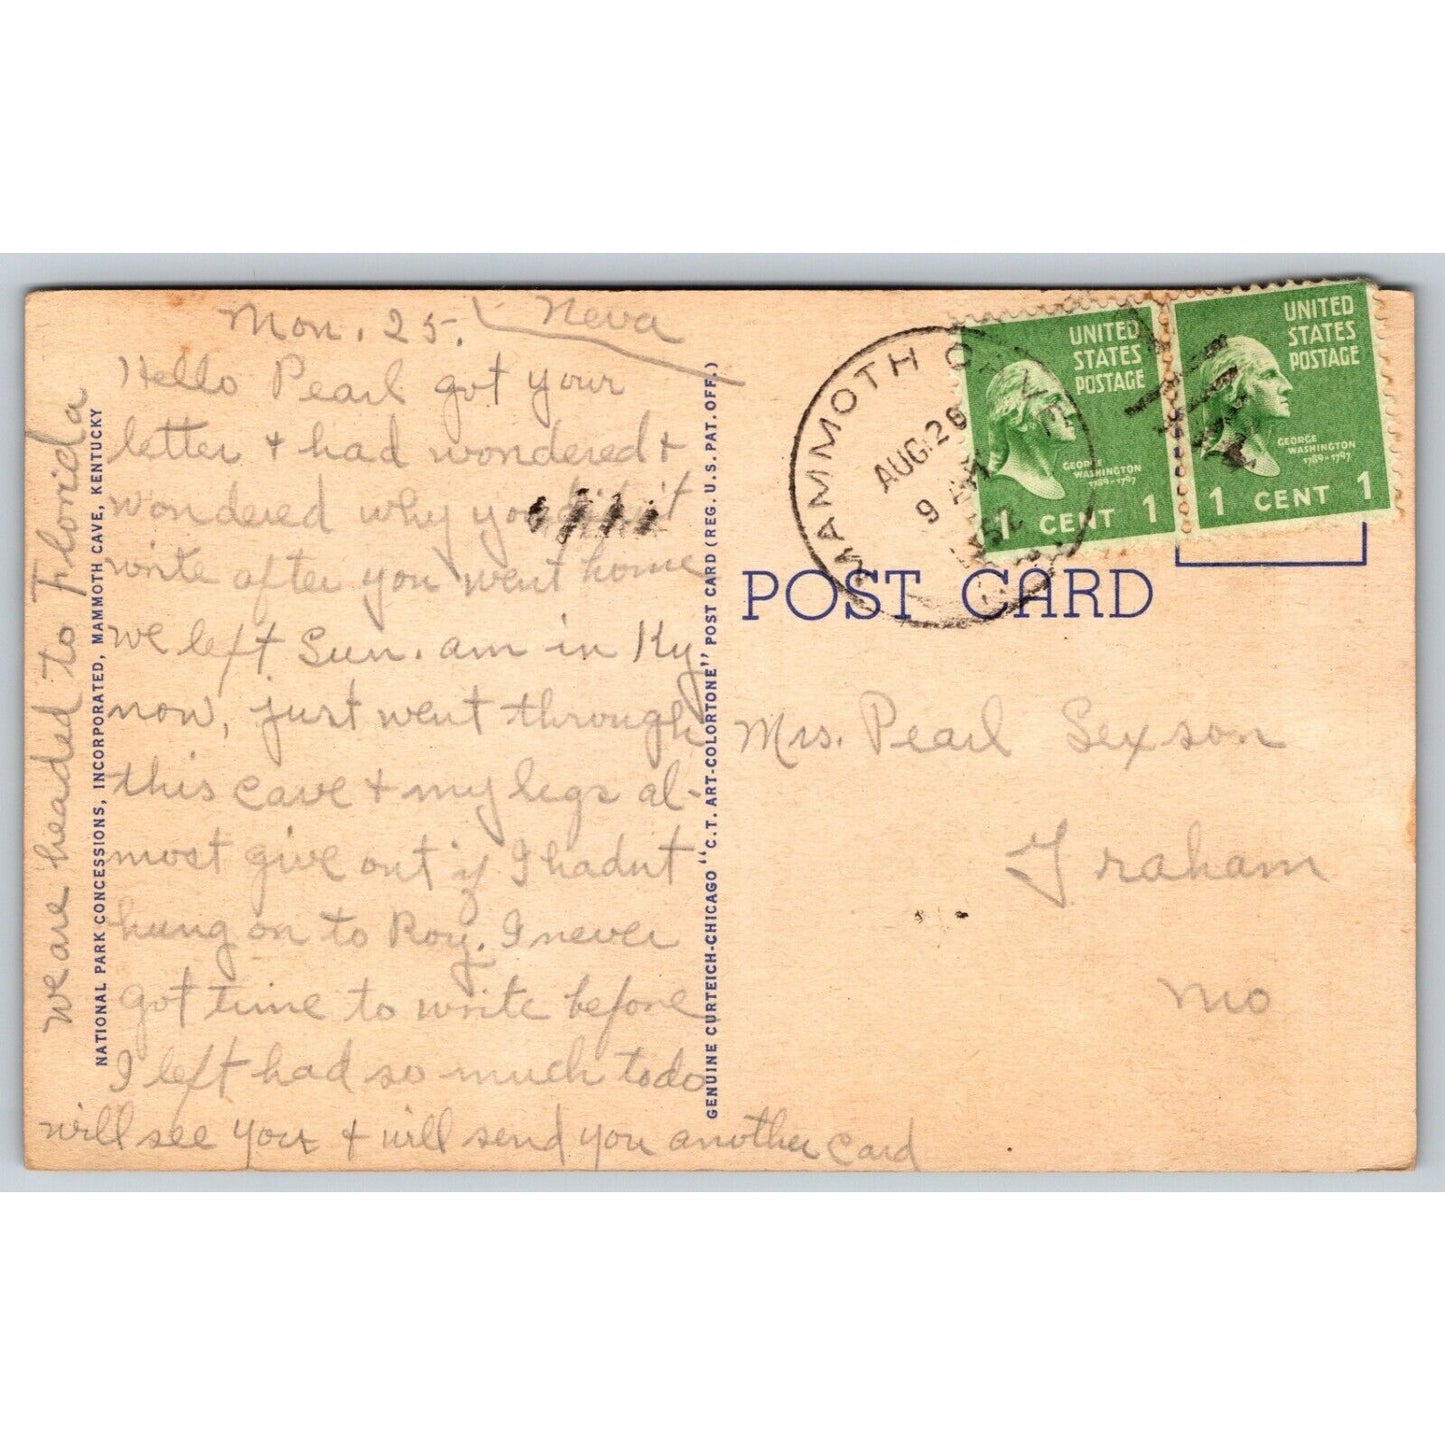 Mon. 25. Neva
Hello Pearl got your
letter + had wondered +
wondered why you didn't
write after you went home
we left Sun. am in Ky
now, just went through
this cave + my legs al-
most give out if I hadnt
hung on to Roy. I never
got time to write before
I left had so much to do
will see you + will send you another card
we are headed to Florida
NATIONAL PARK CONCESSIONS, INCORPORATED, MAMMOTH CAVE, KENTUCKY
GENUINE CURTEICH-CHICAGO "C.T. ART-COLORTONE" POST CARD (REG. U.S. PAT. OFF.)
MAMMOTH CAVE
AUG 26
9 AM
1952
UNITED
STATES
POSTAGE
GEORGE
WASHINGTON
1789-1797
1 CENT 1
UNITED
STATES
POSTAGE
GEORGE
WASHINGTON
1789-1797
1 CENT 1
POST CARD
Mrs. Pearl Sexson
Graham
Mo